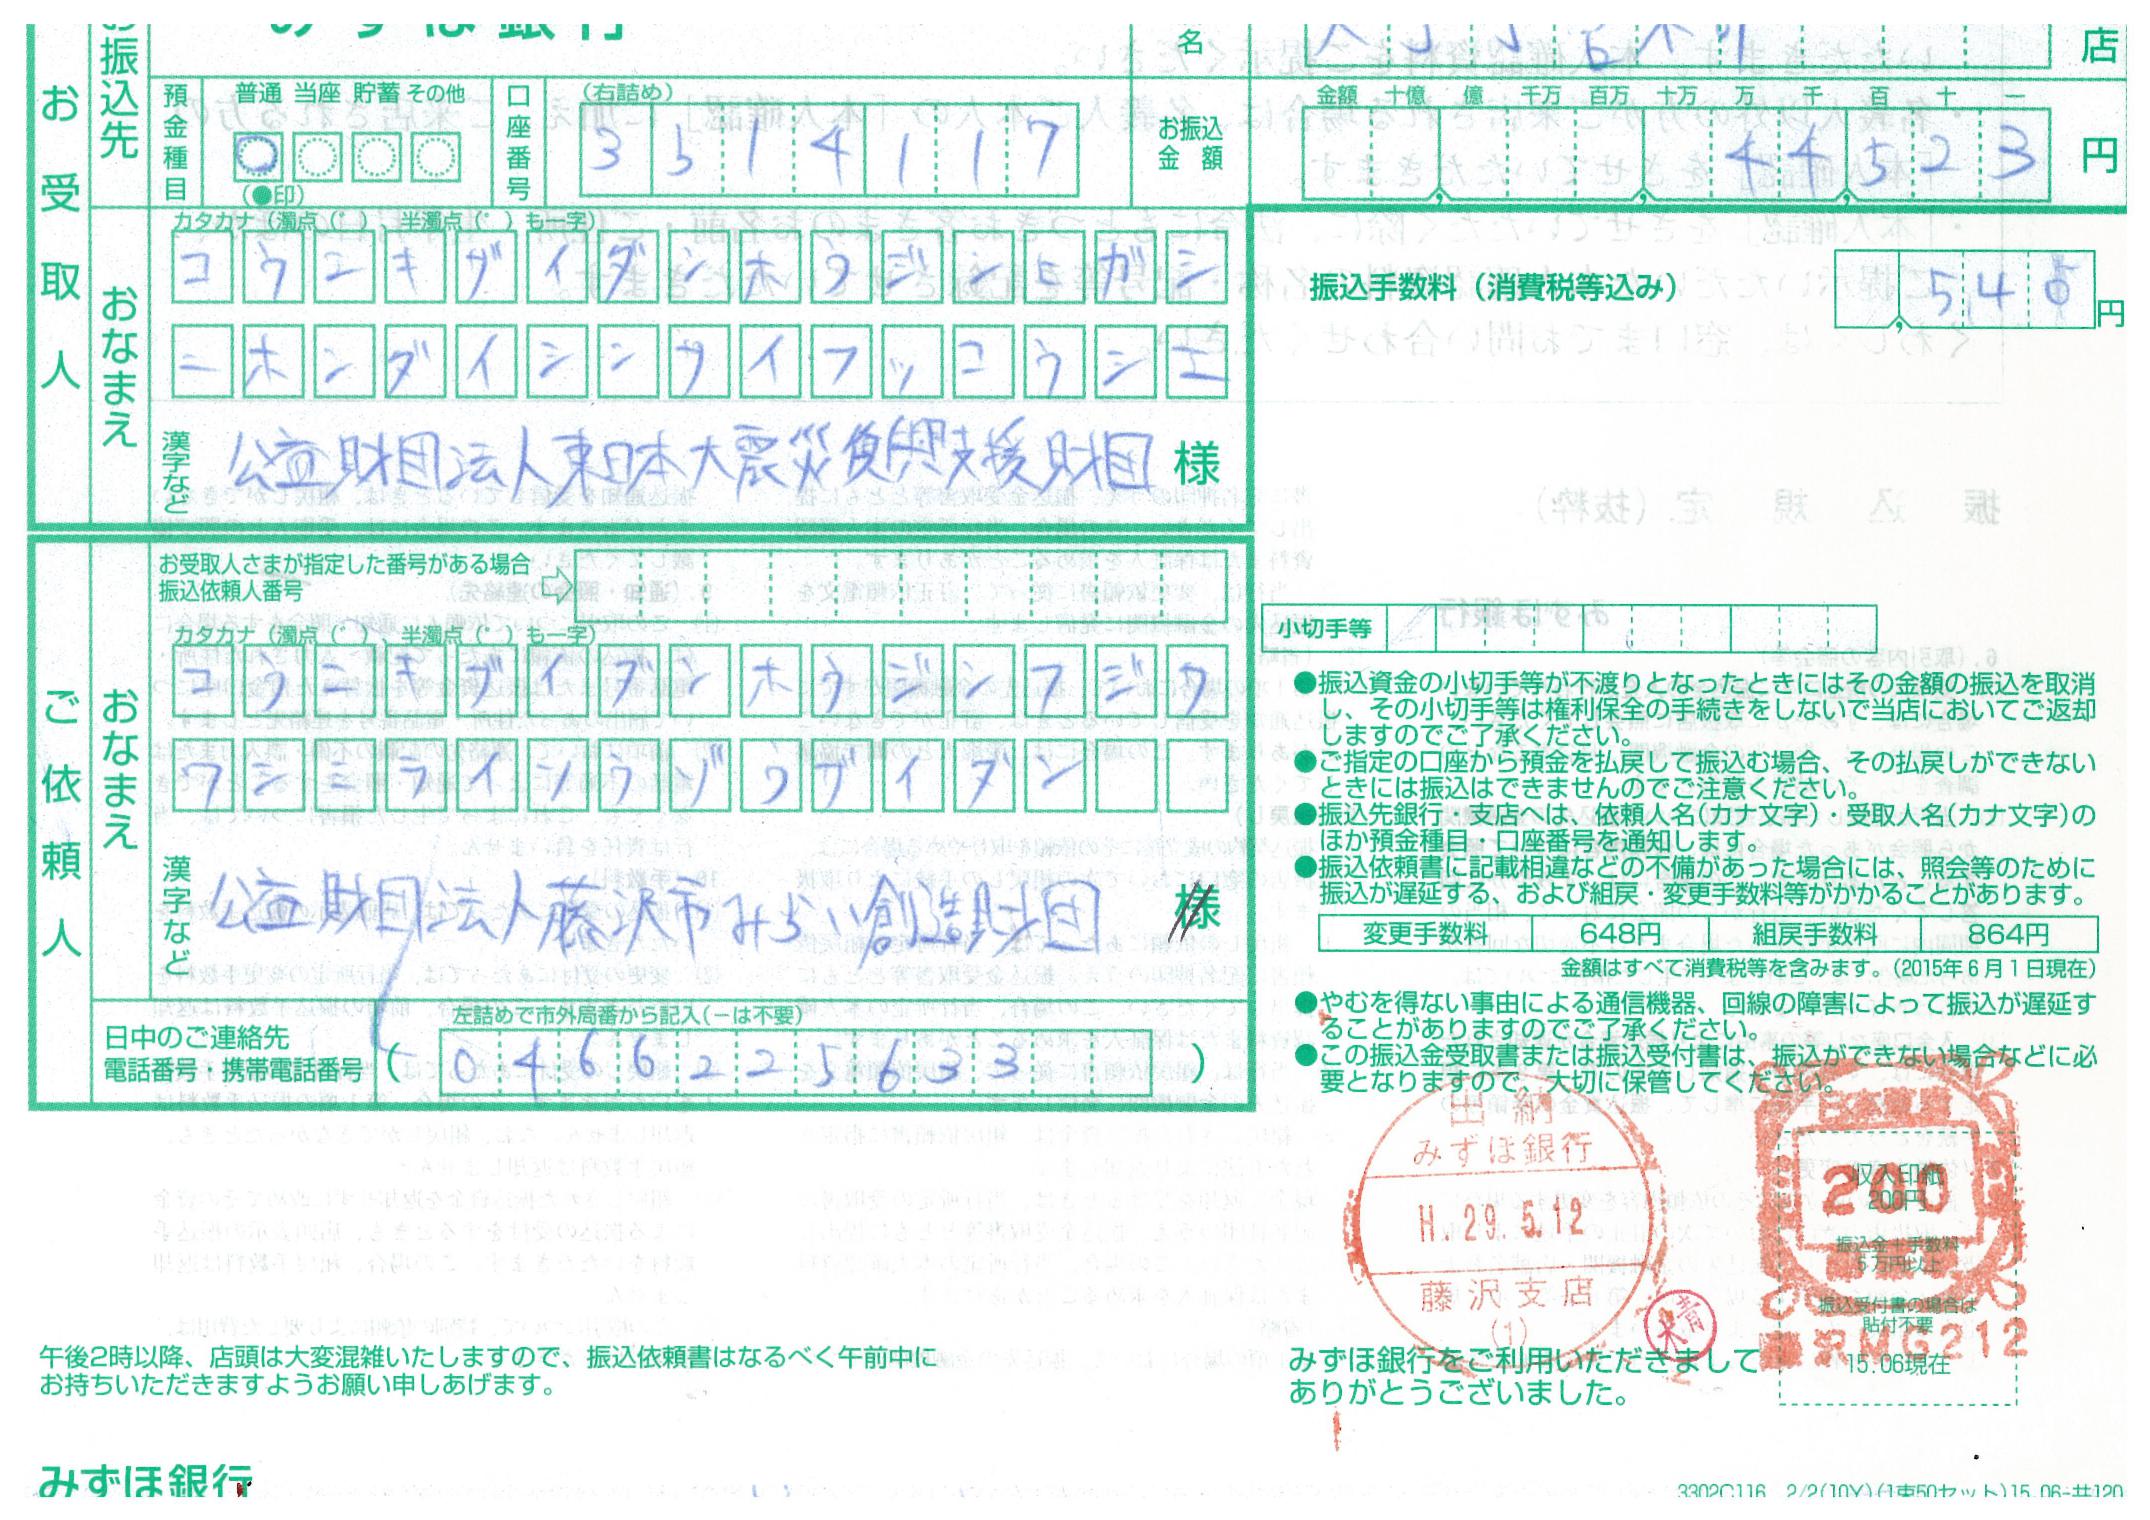 みずほ銀行
お振込先
名
店
お受取人
預金種目
普通 当座 貯蓄 その他
(●印)
口座番号
(右詰め)
3514117
お振込金額
金額 十億 億 千万 百万 十万 万 千 百 十 一
44523
円
おなまえ
カタカナ(濁点(゛)、半濁点(゜)も一字)
コウエキザイダンホウジンヒガシ
ニホンダイシンサイフッコウシエ
漢字など
公益財団法人東日本大震災復興支援財団 様
振込手数料(消費税等込み)
54
円
ご依頼人
お受取人さまが指定した番号がある場合
振込依頼人番号
おなまえ
カタカナ(濁点(゛)、半濁点(゜)も一字)
コウエキザイダンホウジンフジサ
ワシミライソウゾウザイダン
漢字など
公益財団法人藤沢市みらい創造財団 様
日中のご連絡先
電話番号・携帯電話番号
左詰めで市外局番から記入(-は不要)
( 0466225633 )
小切手等
●振込資金の小切手等が不渡りとなったときにはその金額の振込を取消
し、その小切手等は権利保全の手続きをしないで当店においてご返却
しますのでご了承ください。
●ご指定の口座から預金を払戻して振込む場合、その払戻しができない
ときには振込はできませんのでご注意ください。
●振込先銀行・支店へは、依頼人名(カナ文字)・受取人名(カナ文字)の
ほか預金種目・口座番号を通知します。
●振込依頼書に記載相違などの不備があった場合には、照会等のために
振込が遅延する、および組戻・変更手数料等がかかることがあります。
変更手数料 648円 組戻手数料 864円
金額はすべて消費税等を含みます。(2015年6月1日現在)
●やむを得ない事由による通信機器、回線の障害によって振込が遅延す
ることがありますのでご了承ください。
●この振込金受取書または振込受付書は、振込ができない場合などに必
要となりますので、大切に保管してください。
出納
みずほ銀行
H.29.5.12
藤沢支店
(1)
200
収入印紙
200円
振込金+手数料
5万円以上
振込受付書の場合は
貼付不要
藤沢MG212
15.06現在
午後2時以降、店頭は大変混雑いたしますので、振込依頼書はなるべく午前中に
お持ちいただきますようお願い申しあげます。
みずほ銀行をご利用いただきまして
ありがとうございました。
みずほ銀行
3302C116 2/2(10Y)(1束50セット)15.06-共120